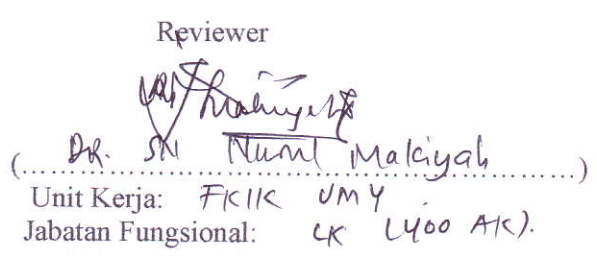 Reviewer
(DR. SN Nurul Makiyah)
Unit Kerja: FKIK UMY
Jabatan Fungsional: LK (400 AK).